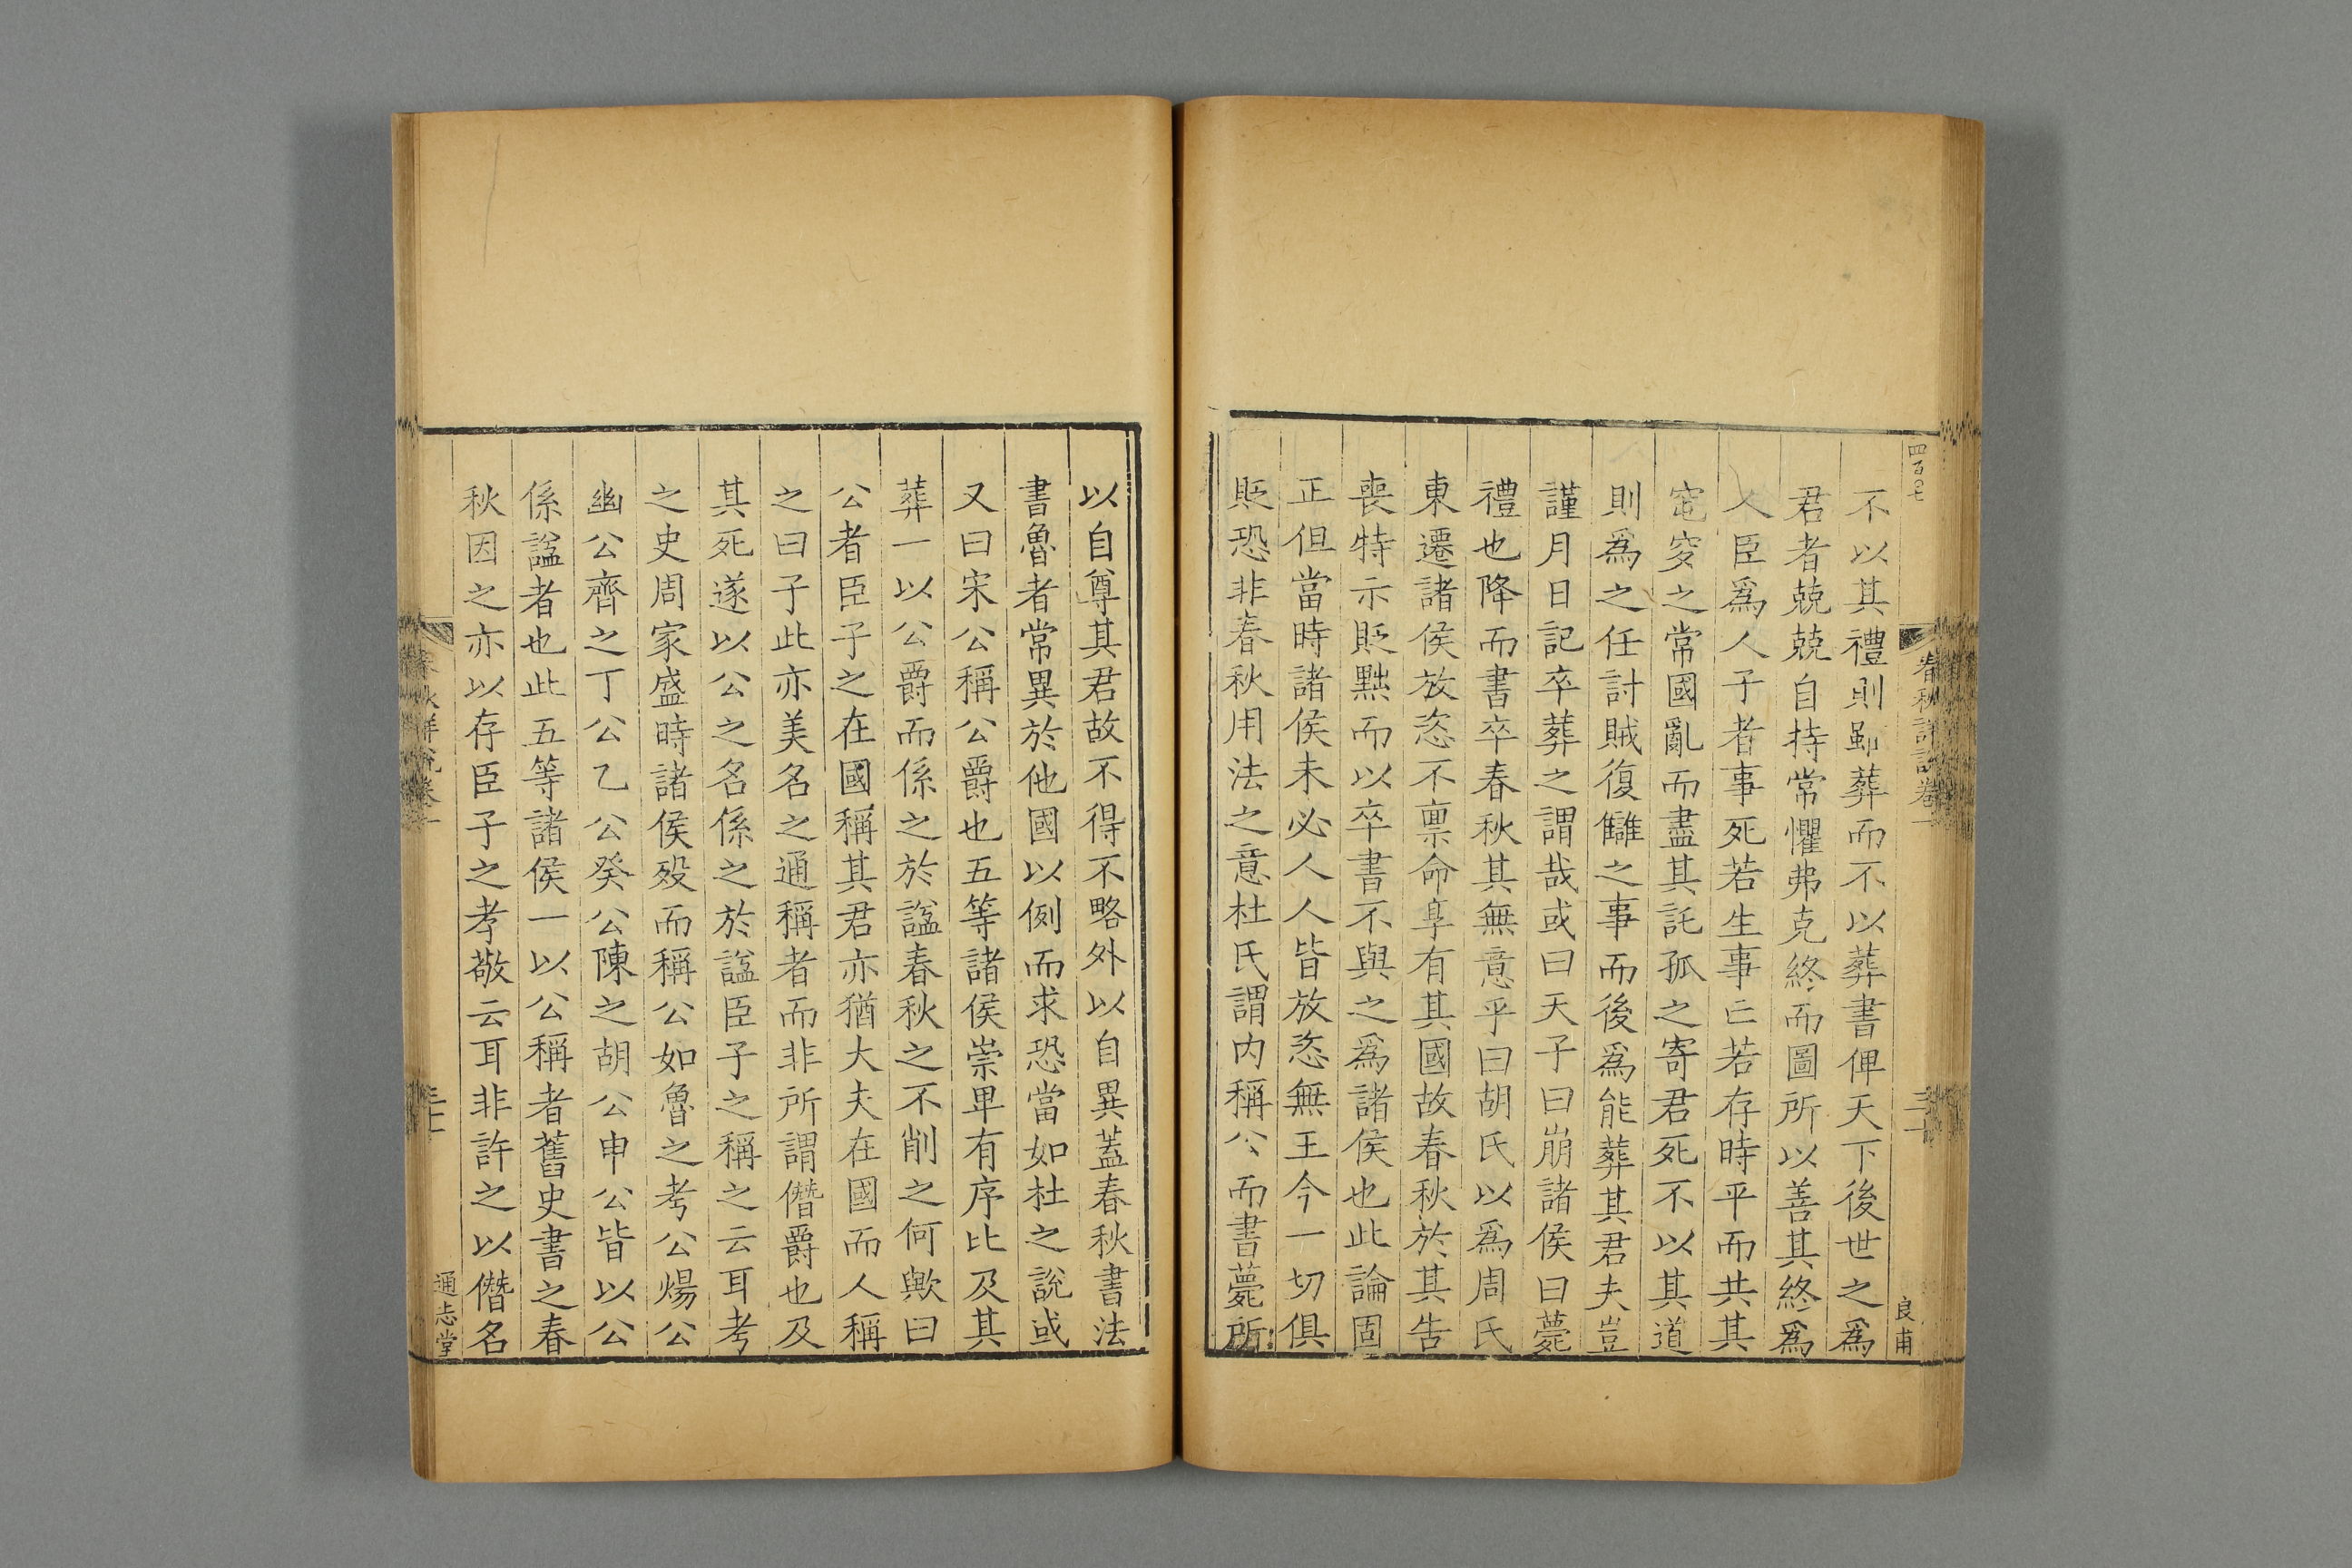 四百〇七
春秋詳說卷一
三十
良甫
不以其禮則雖葬而不以葬書俾天下後世之爲
君者兢兢自持常懼弗克終而圖所以善其終爲
人臣爲人子者事死若生事亡若存時平而共其
窀穸之常國亂而盡其託孤之寄君死不以其道
則爲之任討賊復讎之事而後爲能葬其君夫豈
謹月日記卒葬之謂哉或曰天子曰崩諸侯曰薨
禮也降而書卒春秋其無意乎曰胡氏以爲周氏
東遷諸侯放恣不禀命專有其國故春秋於其告
喪特示貶黜而以卒書不與之爲諸侯也此論固
正但當時諸侯未必人人皆放恣無王今一切俱
貶恐非春秋用法之意杜氏謂内稱公而書薨所
以自尊其君故不得不略外以自異蓋春秋書法
書魯者常異於他國以例而求恐當如杜之說或
又曰宋公稱公爵也五等諸侯崇卑有序比及其
葬一以公爵而係之於諡春秋之不削之何歟曰
公者臣子之在國稱其君亦猶大夫在國而人稱
之曰子此亦美名之通稱者而非所謂僭爵也及
其死遂以公之名係之於諡臣子之稱之云耳考
之史周家盛時諸侯殁而稱公如魯之考公煬公
幽公齊之丁公乙公癸公陳之胡公申公皆以公
係諡者也此五等諸侯一以公稱者舊史書之春
秋因之亦以存臣子之孝敬云耳非許之以僭名
通志堂